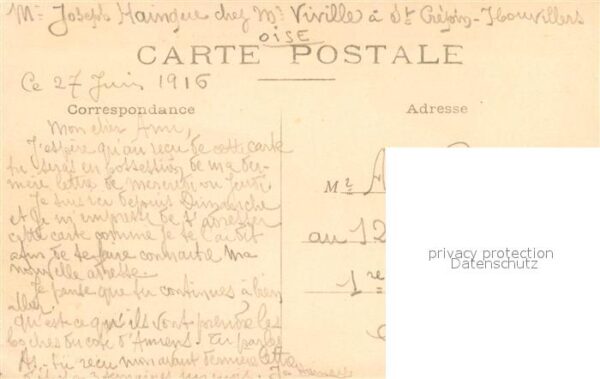 Mr Joseph Haingue chez Mr Viville à St Crépin-Ibouvillers
OISE
CARTE POSTALE
Ce 27 Juin 1916
Correspondance
Adresse
Mon cher Ami,
J'espère qu'au reçu de cette carte
tu seras en possession de ma der-
nière lettre de mercredi ou Jeudi.
Je suis ici depuis Dimanche
et je m'empresse de t'adresser
cette carte comme je te l'ai dit
afin de te faire connaitre ma
nouvelle adresse.
Je pense que tu continues à bien
aller.
qu'est ce qu'ils vont prendre les
boches du coté d'Amiens. tu parles
As-tu reçu mon avant dernière lettre
Mr A
au 12
1re
privacy protection
Datenschutz